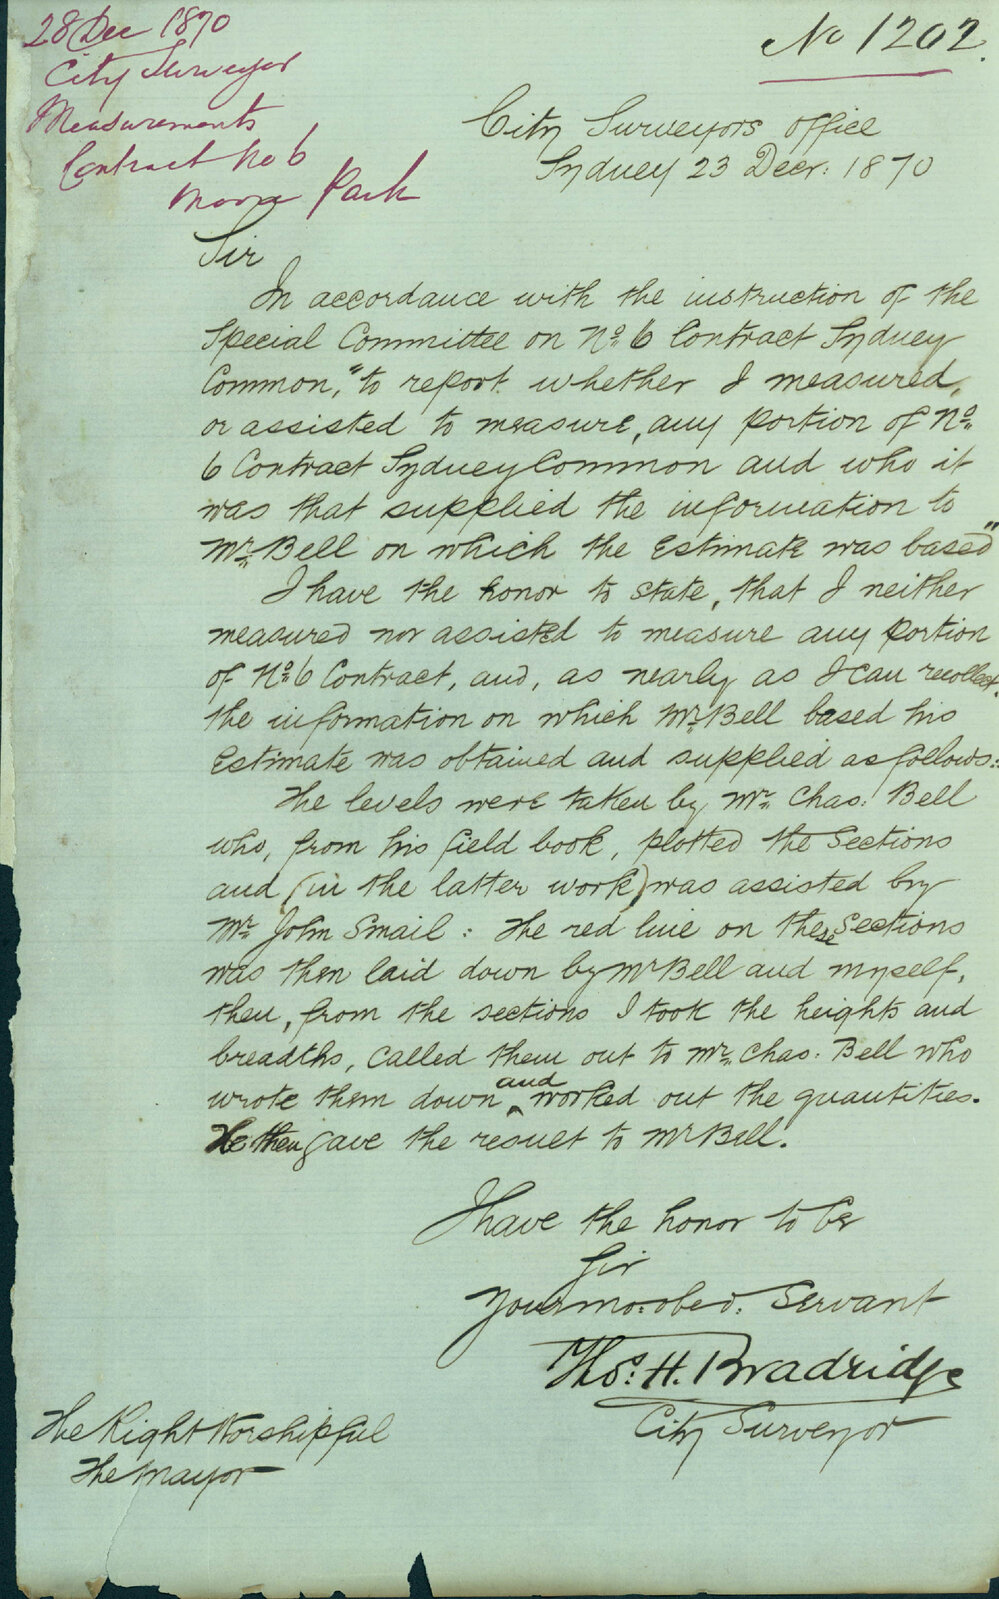 28 Dec 1870
City Surveyor
Measurements
Contract No 6
Moore Park
No 1202.
City Surveyors office
Sydney 23 Decr: 1870
Sir
In accordance with the instruction of the
Special Committee on No. 6 Contract Sydney
Common, "to report whether I measured,
or assisted to measure, any portion of No.
6 Contract Sydney Common and who it
was that supplied the information to
Mr. Bell on which the Estimate was based"
I have the honor to state, that I neither
measured nor assisted to measure any portion
of No. 6 Contract, and, as nearly as I can recollect.
the information on which Mr. Bell based his
Estimate was obtained and supplied as follows:
The levels were taken by Mr. Chas: Bell
who, from his field book, plotted the Sections
and (in the latter work) was assisted by
Mr. John Smail: The red line on these Sections
was then laid down by Mr Bell and myself,
then, from the sections I took the heights and
breadths, called them out to Mr. Chas: Bell who
wrote them down and worked out the quantities.
He then gave the result to Mr Bell.
I have the honor to be
Sir
Your mo: obed: Servant
Thos: H. Bradridge
City Surveyor
The Right Worshipful
The Mayor